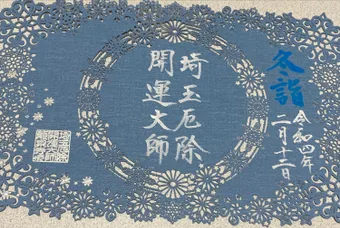 冬詣
令和四年
二月十二日
埼玉厄除
開運大師